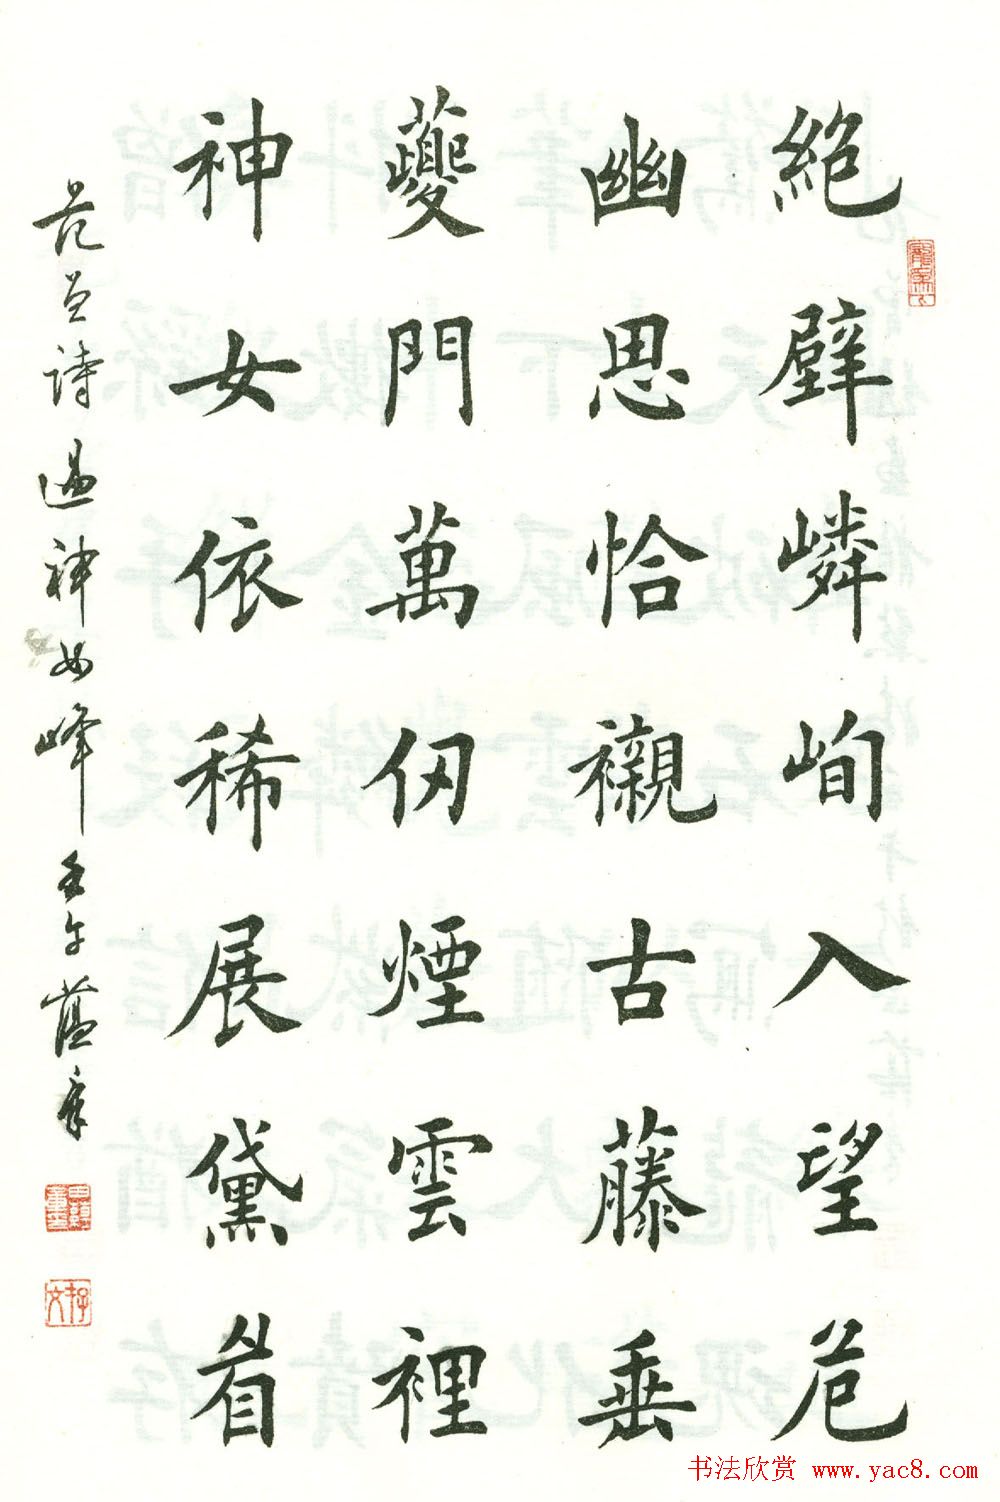 絶壁嶙峋入望危
幽思恰襯古藤垂
蘷門萬仞煙雲裡
神女依稀展黛眉
范曾詩過神女峰 壬午蘊章
书法欣赏 www.yac8.com